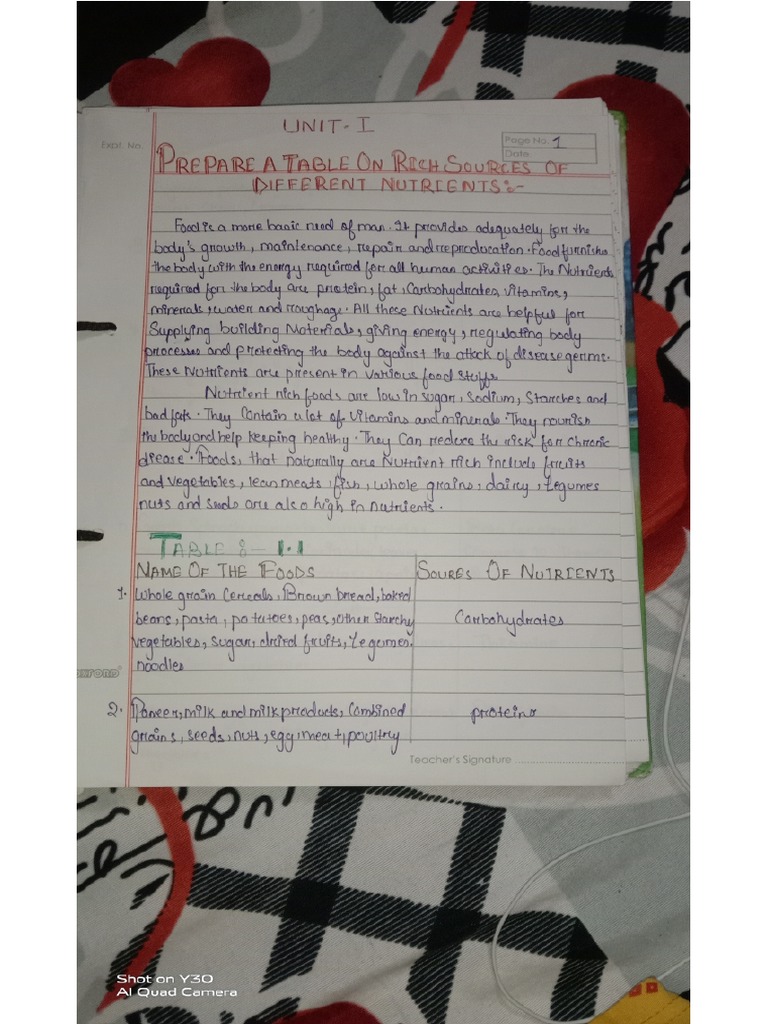 UNIT-I
Expt. No.
Page No. 1
Date
PREPARE A TABLE ON RICH SOURCES OF
DIFFERENT NUTRIENTS:-
Food is a more basic need of man. It provides adequately for the
body's growth, maintenance, repair and reproducation. Food furnishes
the body with the energy required for all human activities. The Nutrients
required for the body are protein, fat, Carbohydrates, Vitamins,
minerals, water and roughage. All these Nutrients are helpful for
Supplying building Materials, giving energy, regulating body
processes and protecting the body against the attack of disease germs.
These Nutrients are present in various food stuffs
Nutrient rich foods are low in sugar, Sodium, Starches and
bad fats. They Contain a lot of Vitamins and minerals. They nourish
the body and help keeping healthy. They Can reduce the risk for Chronic
diease. Foods, that naturally are Nutrient rich include fruits
and Vegetables, lean meats, fish, whole grains, dairy, Legumes
nuts and seeds are also high in nutrients.
TABLE :- 1.1
NAME OF THE FOODS SOURES OF NUTRIENTS
1. Whole grain Cereals, Brown bread, baked
beans, pasta, potatoes, peas, other starchy Carbohydrates
vegetables, sugar, dried fruits, Legumes,
noodles
2. Paneer, milk and milk products, Combined proteins
grains, seeds, nuts, egg, meat, poultry
Teacher's Signature
Shot on Y30
AI Quad Camera